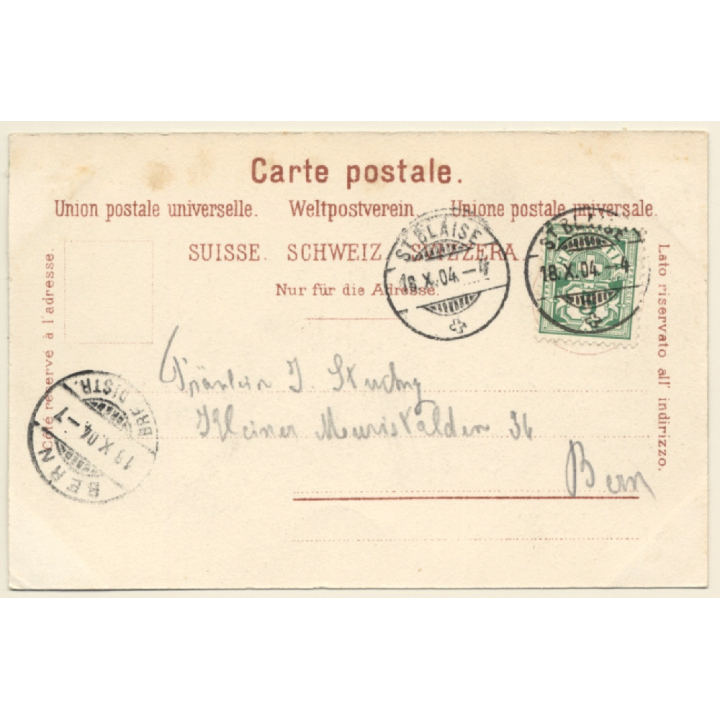 Carte postale.
Union postale universelle. Weltpostverein. Unione postale universale.
SUISSE. SCHWEIZ. SVIZZERA.
Nur für die Adresse.
Côté réservé à l'adresse.
Lato riservato all' indirizzo.
ST BLAISE
18.X.04.-4
ST BLAISE
18.X.04.-4
BERN
BRF. DISTR.
19.X.04.-7
Fräulein J. Stucky
Kleiner Muristalden 34
Bern